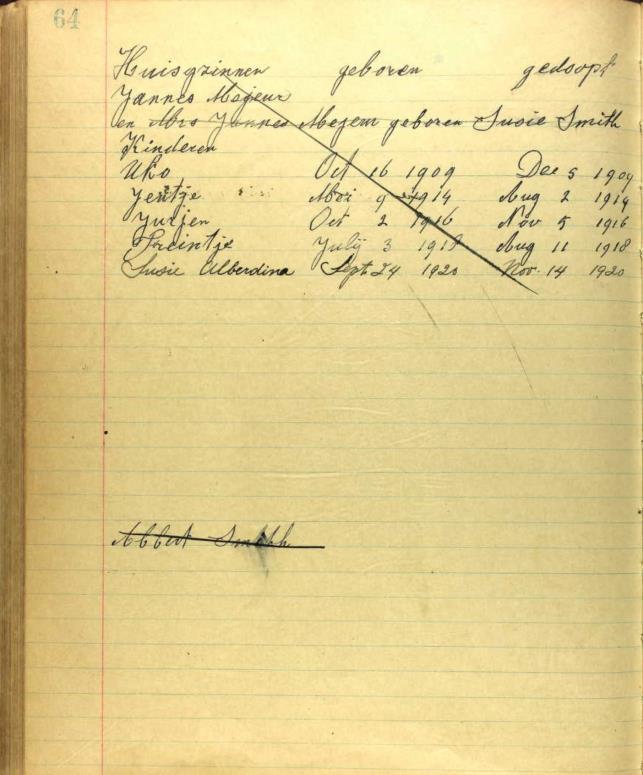 64
Huisgzinnen geboren gedoopt
Yannes Mejeur
en Mrs Yannes Mejeur geboren Susie Smith
Kinderen
Uko Oct 16 1909 Dec 5 1909
Jentje Mei 9 1914 Aug 2 1914
Jurjen Oct 2 1916 Nov 5 1916
Treintje July 3 1918 Aug 11 1918
Susie Alberdina Sept 24 1920 Nov. 14 1920
Albert Smith